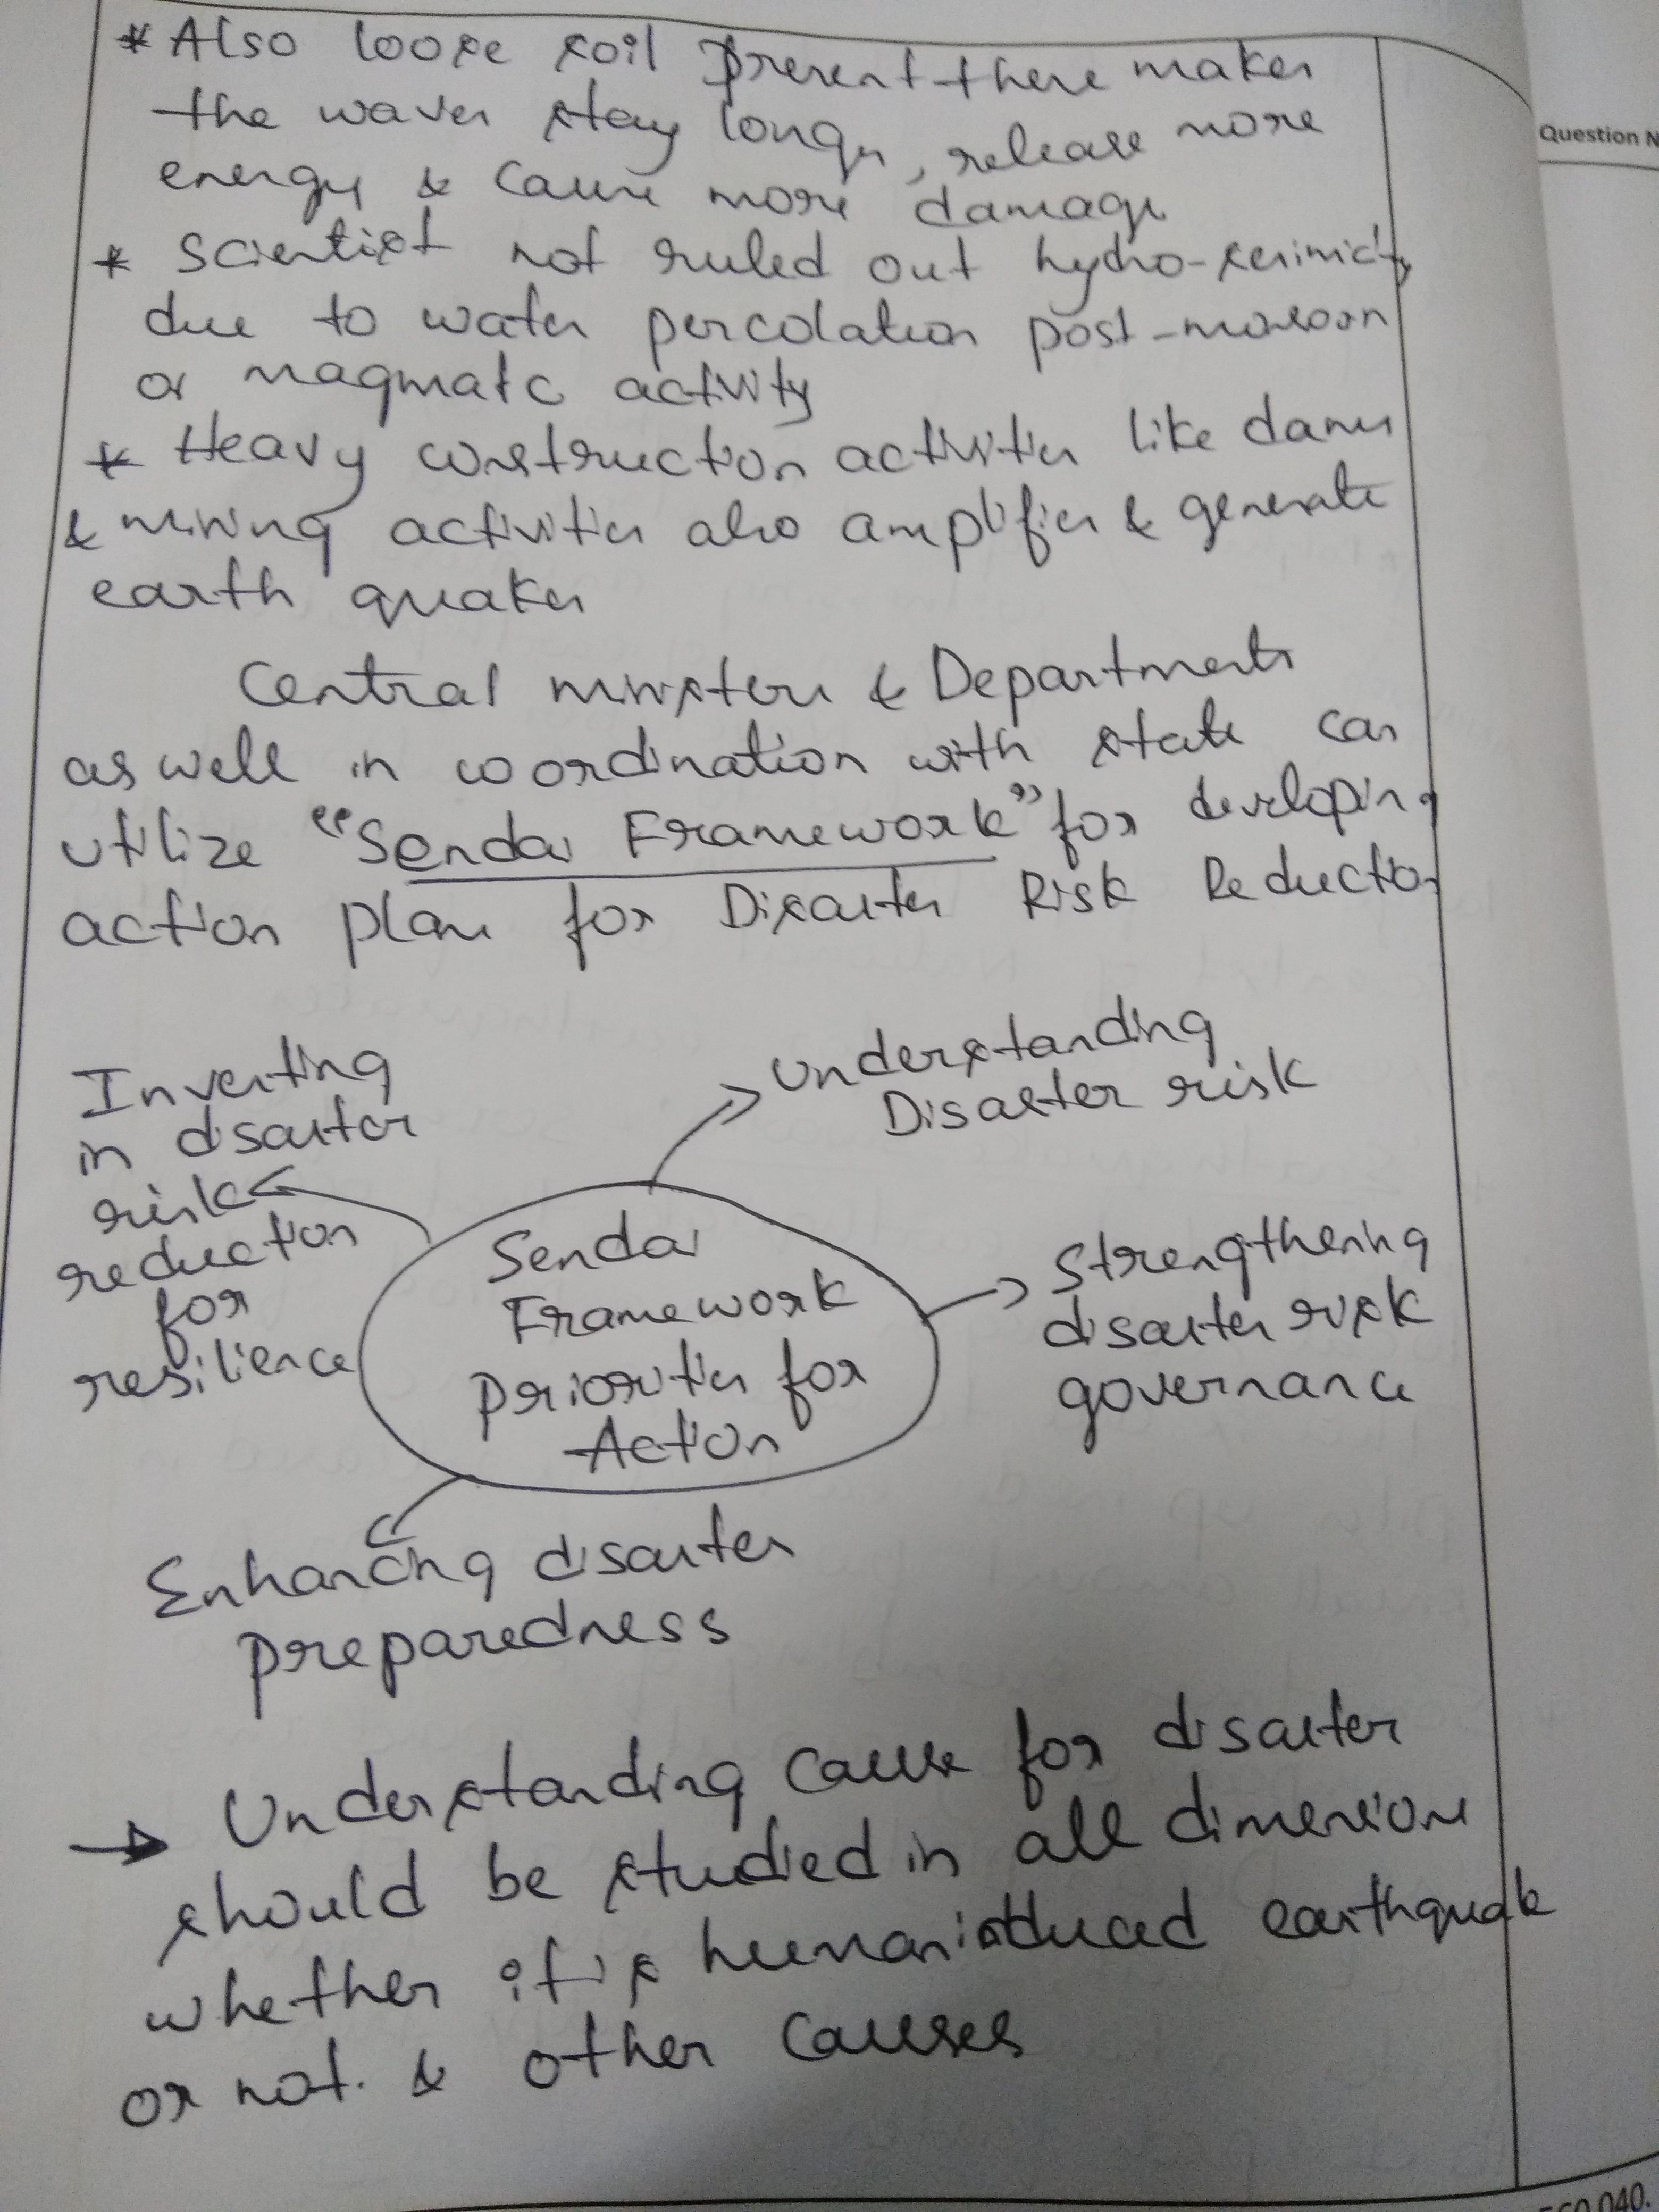 * Also loose soil present there makes
the waves stay longer, release more
energy & cause more damage
* Scientist not ruled out hydro-seismicity
due to water percolation post-monsoon
or magmatc activity
* Heavy construction activities like dams
& mining activities also amplifies & generate
earth quakes
Central ministers & Departments
as well in coordination with state can
utilize "Sendai Framework" for developing
action plans for Disaster Risk Reduction
Understanding
Disaster risk
Investing
in disaster
risk
reduction
for
resilience
Sendai
Framework
Priorities for
Action
Strengthening
disaster risk
governance
Enhancing disaster
preparedness
→ Understanding cause for disaster
should be studied in all dimensions
whether it is human induced earthquake
or not. & other causes
Question N
560 040.